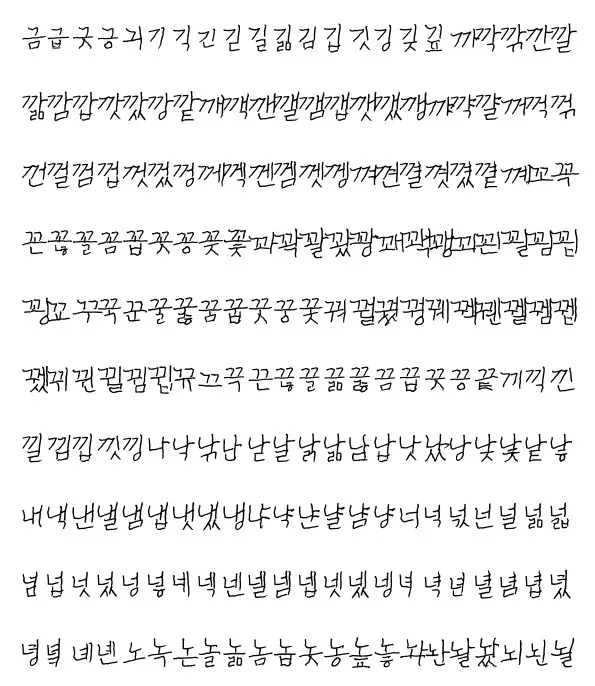 금급긋긍긔기긱긴긷길긺김깁깃깅깆깊까깍깎깐깔
깖깜깝깟깠깡깥깨깩깬깰깸깹깻깼깽꺄꺅꺌꺼꺽꺾
껀껄껌껍껏껐껑께껙껜껨껫껭껴껸껼꼇꼈꼍꼐꼬꼭
꼰꼲꼴꼼꼽꼿꽁꽂꽃꽈꽉꽐꽜꽝꽤꽥꽹꾀꾄꾈꾐꾑
꾕꾜꾸꾹꾼꿀꿇꿈꿉꿋꿍꿎꿔꿜꿨꿩꿰꿱꿴꿸뀀뀁
뀄뀌뀐뀔뀜뀝뀨끄끅끈끊끌끎끓끔끕끗끙끝끼끽낀
낄낌낍낏낑나낙낚난낟날낡낢남납낫났낭낮낯낱낳
내낵낸낼냄냅냇냈냉냐냑냔냘냠냥너넉넋넌널넒넓
넘넙넛넜넝넣네넥넨넬넴넵넷넸넹녀녁년녈념녑녔
녕녘녜녠노녹논놀놂놈놉놋농높놓놔놘놜놨뇌뇐뇔